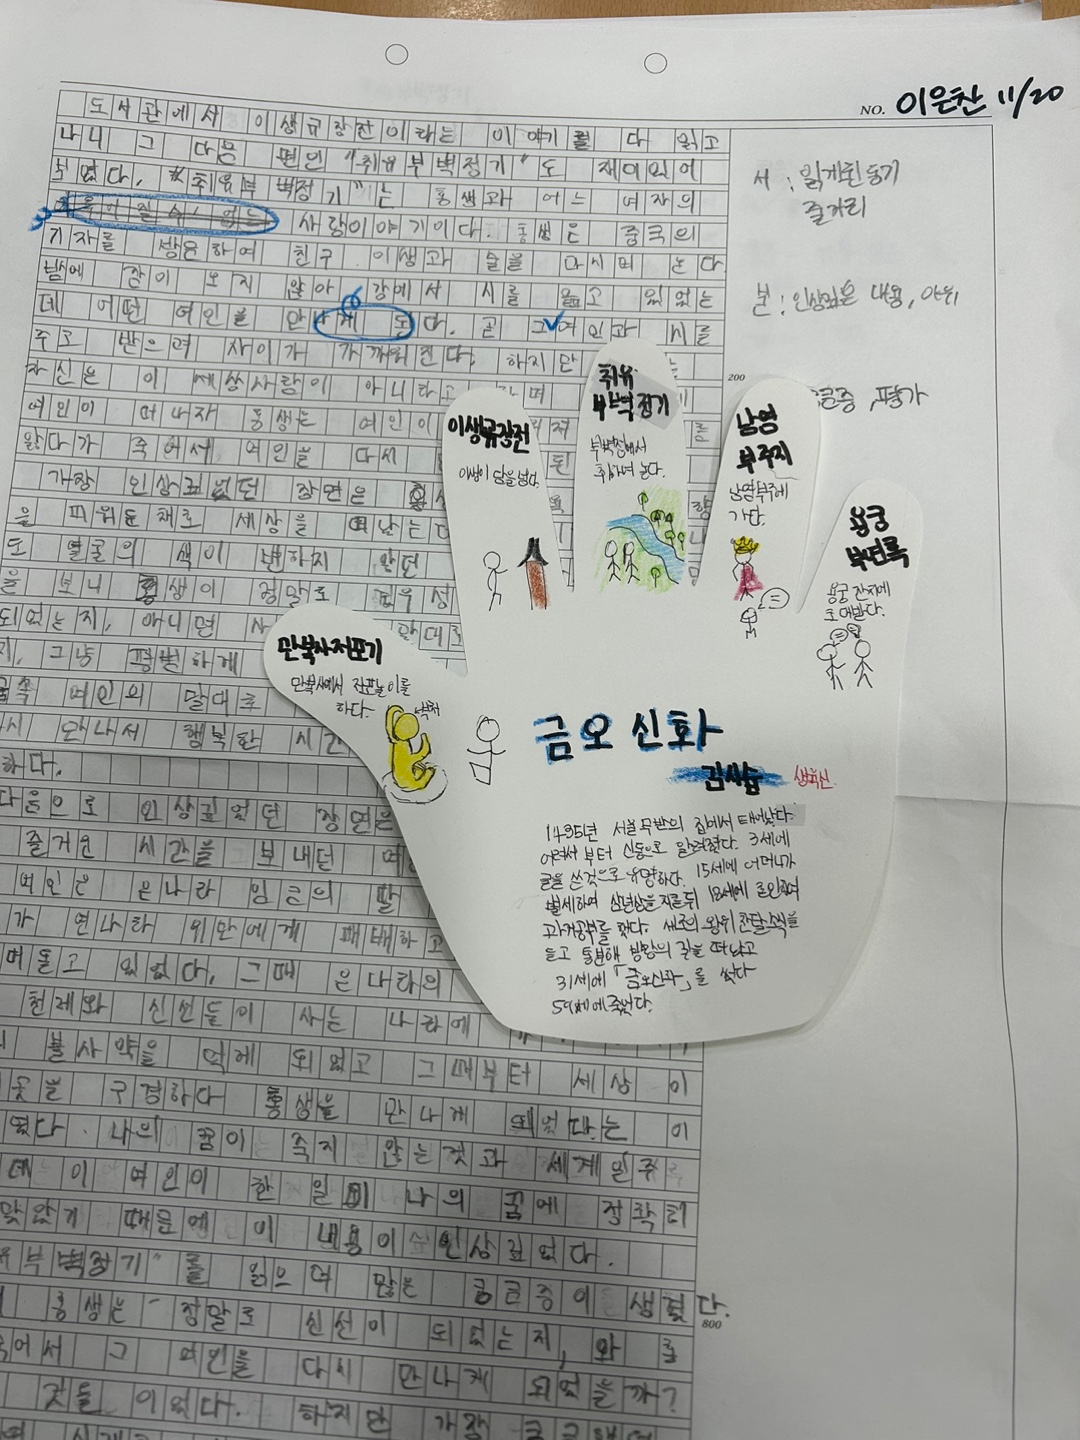 NO. 이은찬 11/20
도서관에서 이생규장전이라는 이야기를 다 읽고
나니 그 다음 편인 "취유부벽정기"도 재미있어
보였다. "취유부벽정기"는 홍생과 어느 여자의
이루어질 수 없는 사랑이야기이다. 홍생은 중국의
기자를 방문하여 친구 이생과 술을 마시며 논다
밤에 잠이 오지 않아 강에서 시를 읊고 있었는
데 어떤 여인을 만나게 된다. 곧 그 여인과 시를
주고 받으며 사이가 가까워진다. 하지만
자신은 이 세상사람이 아니라고
여인이 떠나자 홍생은 여인이
앓다가 죽어서 여인을 다시
가장 인상깊었던 장면은
을 피워둔채로 세상을 떠났는데
도 얼굴의 색이 변하지 않던
을 보니 홍생이 정말로
되었는지, 아니면
지, 그냥 평범하게
여인의 말대로
만나서 행복한 시간
하다.
다음으로 인상깊었던 장면은
즐거운 시간을 보내던
여인은 은나라 임금의 딸
가 연나라 위만에게 패배하고
떠돌고 있었다. 그때 은나라의
천제와 신선들이 사는 나라에
불사약을 먹게 되었고 그때부터 세상 이
곳을 구경하다 홍생을 만나게 되었다는 이
였다. 나의 꿈이 죽지 않는것과 세계일주
데 이 여인이 한 일이 나의 꿈에 정확히
맞았기 때문에 이 내용이 인상깊었다.
부벽정기"를 읽으며 많은 궁금증이 생겼다.
홍생은 정말로 신선이 되었는지, 와
어서 그 여인을 다시 만나게 되었을까?
것들이었다. 하지만 가장
200
800
서 : 읽게된 동기
줄거리
본 : 인상깊은 내용, 이유
궁금증, 평가
이생규장전
이생이 담을 넘다.
취유
부벽정기
부벽정에서
취하여 놀다.
남염
부주지
남염부주에
가다.
용궁
부연록
용궁 잔치에
초대받다.
만복사저포기
만복사에서 저포놀이를
하다.
금오신화
김시습
생육신
1435년 서울 무반의 집에서 태어났다.
어려서 부터 신동으로 알려졌다. 3세에
글을 쓴것으로 유명하다. 15세에 어머니가
별세하여 삼년상을 치른뒤 18세에 혼인하여
과거공부를 했다. 세조의 왕위 찬탈 소식을
듣고 통분해 방랑의 길을 떠났고
31세에 「금오신화」를 썼다
59세에 죽었다.